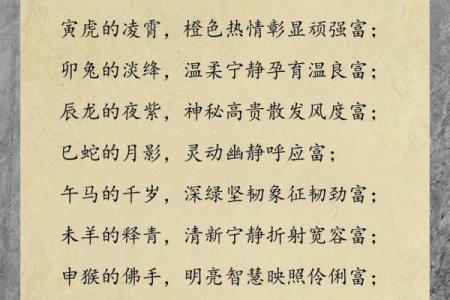 寅虎的凌霄，橙色热情彰显顽强富；
卯兔的淡绛，温柔宁静孕育温良富；
辰龙的夜紫，神秘高贵散发风度富；
巳蛇的月影，灵动幽静呼应富；
午马的千岁，深绿坚韧象征韧劲富；
未羊的释青，清新宁静折射宽容富；
申猴的佛手，明亮智慧映照伶俐富；